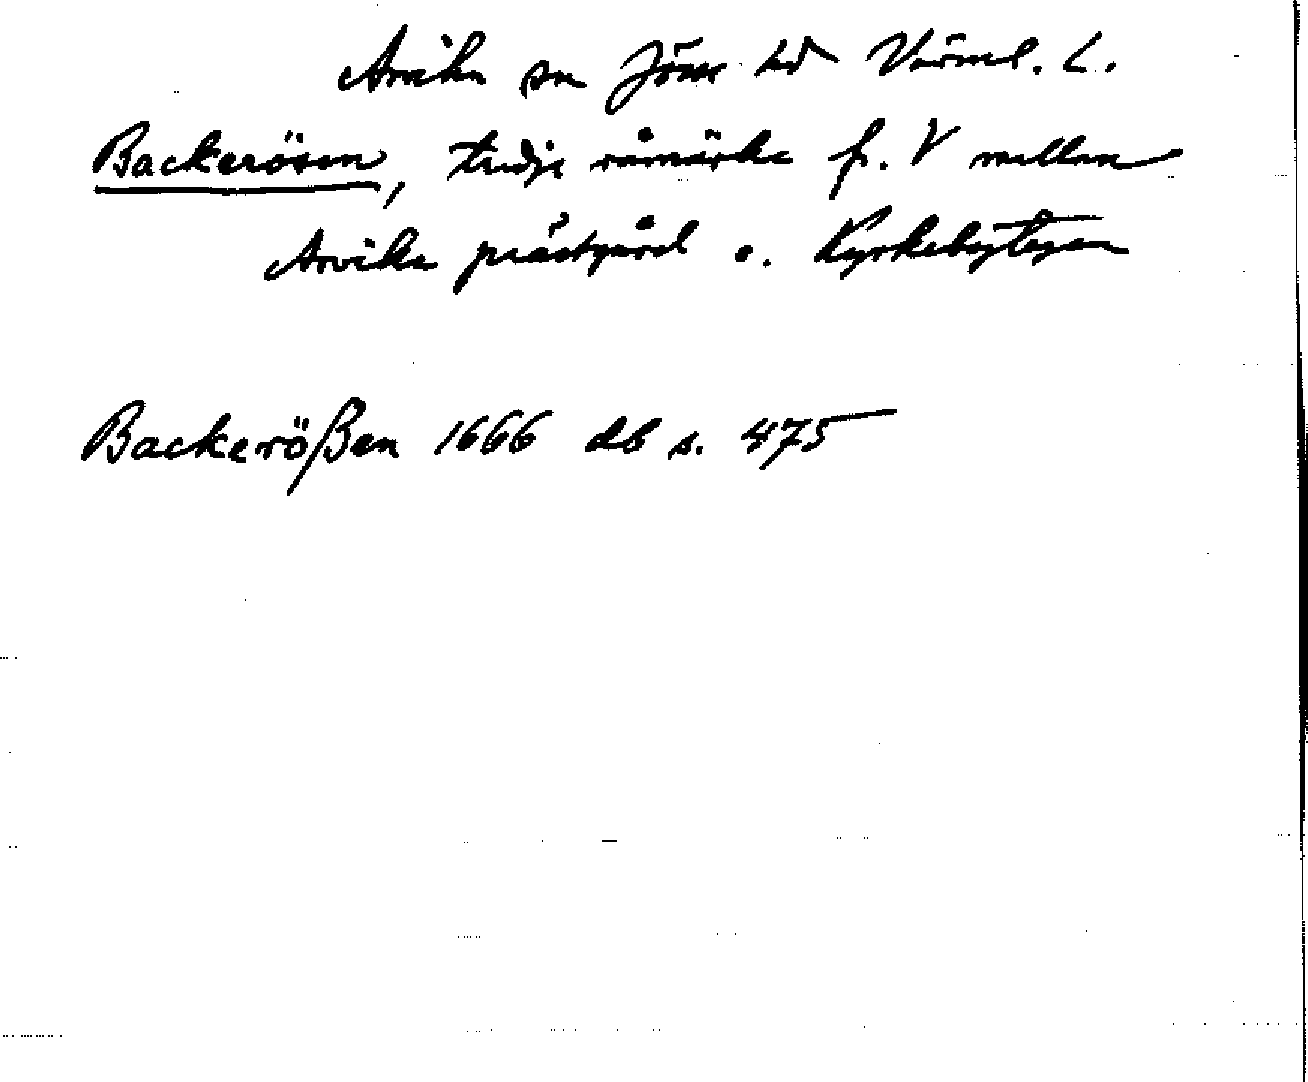 Arvika sn Jösse hd Värml. L.
Backerösen, tredje råmärke fr. V mellan
Arvika prästgård o. Kyrkebytegen
Backerößen 1666 db s. 475